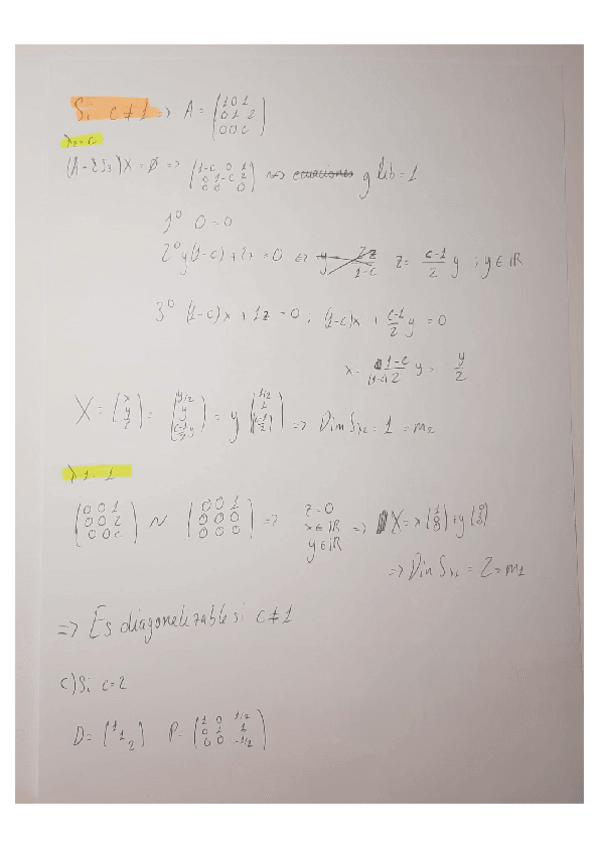 Si c≠1 => A = (1 0 1 / 0 1 2 / 0 0 c)
λ2=c
(A-λI3)X = Ø => (1-c 0 1 / 0 1-c 2 / 0 0 0) ~> g lib = 1
1º 0=0
2º y(1-c)+2z=0 <=> z= c-1/2 y ; y∈ℝ
3º (1-c)x + 1z=0 ; (1-c)x + c-1/2 y = 0
x= 1-c/(1-c)2 y = y/2
X = (x / y / z) = (y/2 / y / c-1/2 y) = y (1/2 / 1 / c-1/2) => Dim Sλ2 = 1 = m2
λ1=1
(0 0 1 / 0 0 2 / 0 0 c) ~ (0 0 1 / 0 0 0 / 0 0 0) => z=0 x∈ℝ y∈ℝ => X = x(1 / 0 / 0)+y(0 / 1 / 0)
=> Dim Sλ1 = 2 = m1
=> Es diagonalizable si c≠1
c) Si c=2
D= (1 1 2) P= (1 0 1/2 / 0 1 1 / 0 0 -1/2)